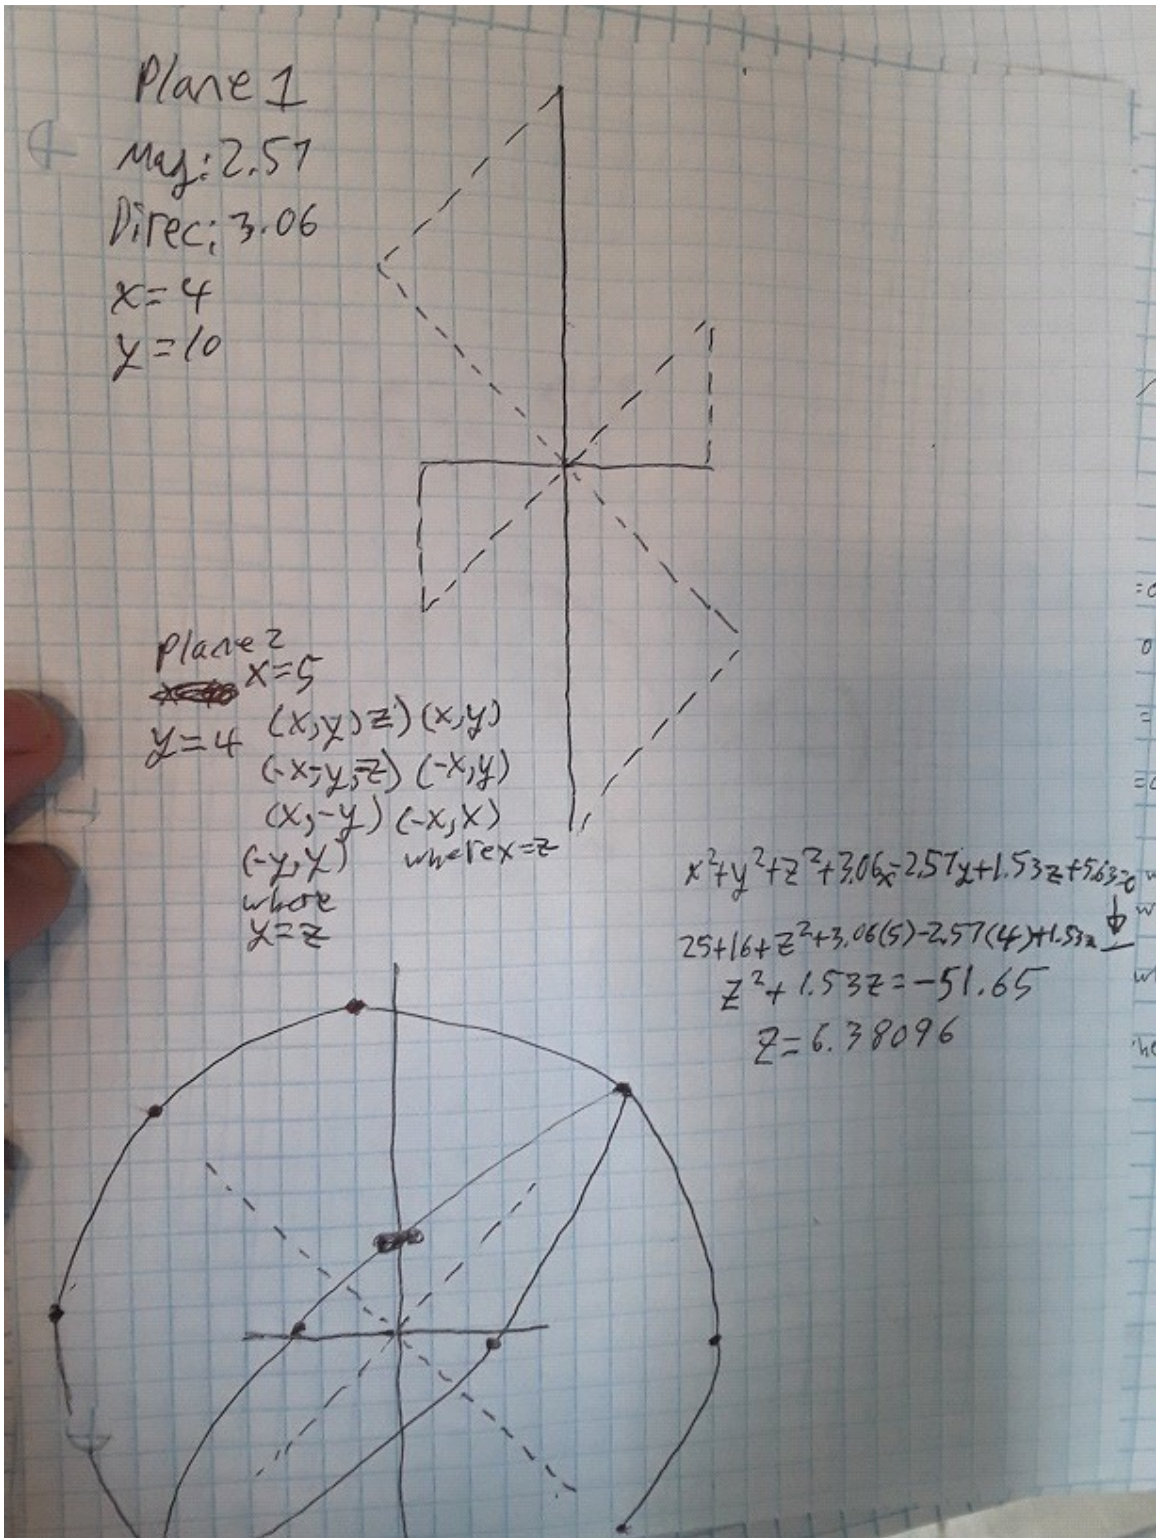 Plane 1
Mag: 2.57
Direc: 3.06
x=4
y=10
Plane 2
x=5
y=4
(x,y,z) (x,y)
(-x,-y,-z) (-x,y)
(x,-y) (-x,x)
where x=z
(-y,y)
where
y=z
x²+y²+z²+3.06x-2.57y+1.53z+5.63=0
25+16+z²+3.06(5)-2.57(4)+1.53z
z²+1.53z=-51.65
z=6.38096